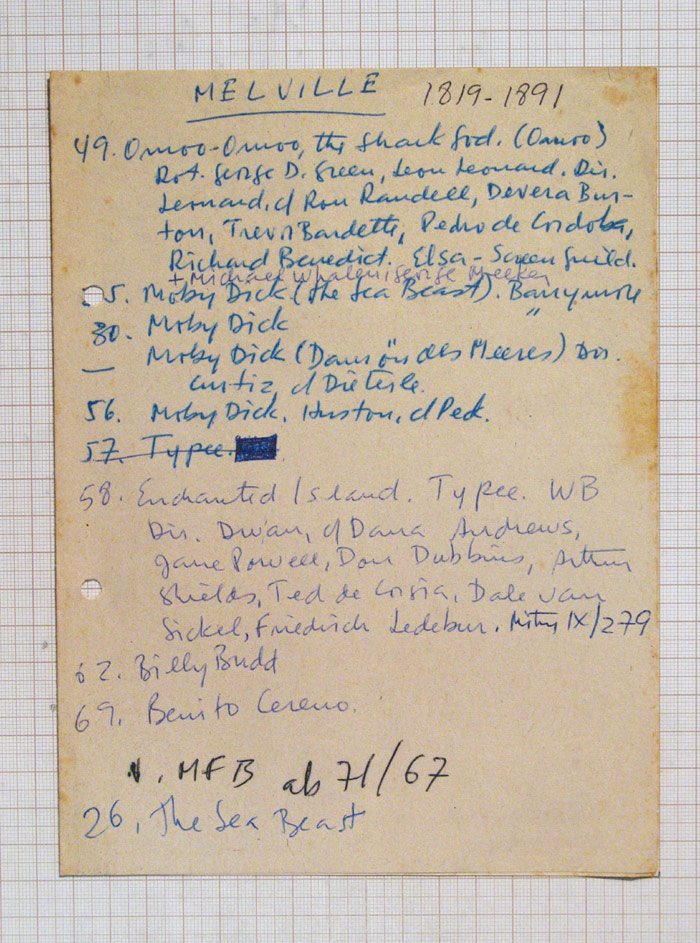 MELVILLE 1819-1891
49. Omoo-Omoo, the Shark God. (Omoo)
George D. Green, Leon Leonard. Dir.
Leonard, d Ron Randell, Devera Bur-
ton, Trevor Bardette, Pedro de Cordoba,
Richard Benedict. Elsa - Screen Guild.
+ Michael Whalen, George Meeker
5. Moby Dick (The Sea Beast). Barrymore
30. Moby Dick "
— Moby Dick (Dämon des Meeres) Dir.
Curtiz, d Dieterle.
56. Moby Dick. Huston, d Peck.
57. Typee.
58. Enchanted Island. Typee. WB
Dir. Dwan, d Dana Andrews,
Jane Powell, Don Dubbins, Arthur
Shields, Ted de Corsia, Dale van
Sickel, Friedrich Ledebur. IX/279
62. Billy Budd
69. Benito Cereno.
MFB ab 71/67
26, The Sea Beast